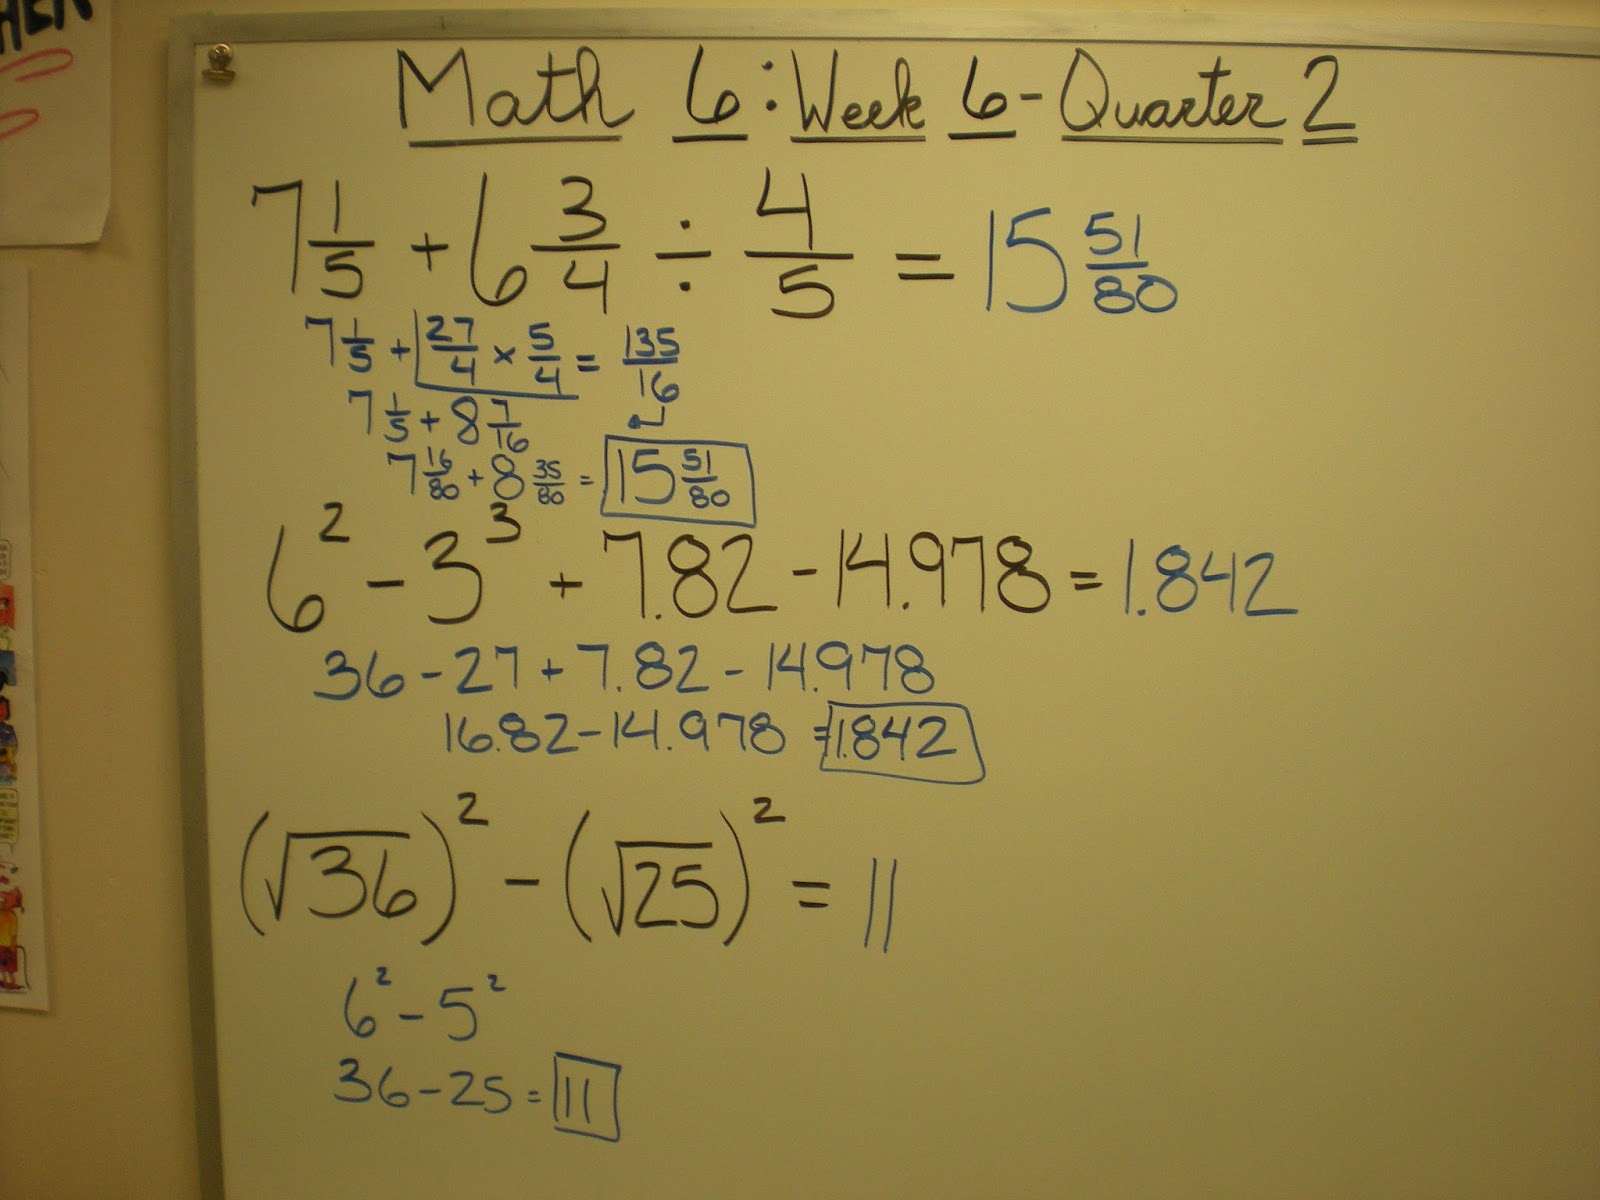 HEN
Math 6 : Week 6 - Quarter 2
7 1/5 + 6 3/4 ÷ 4/5 = 15 51/80
7 1/5 + 27/4 × 5/4 = 135/16
7 1/5 + 8 7/16
7 16/80 + 8 35/80 = 15 51/80
6² - 3³ + 7.82 - 14.978 = 1.842
36 - 27 + 7.82 - 14.978
16.82 - 14.978 = 1.842
(√36)² - (√25)² = 11
6² - 5²
36 - 25 = 11